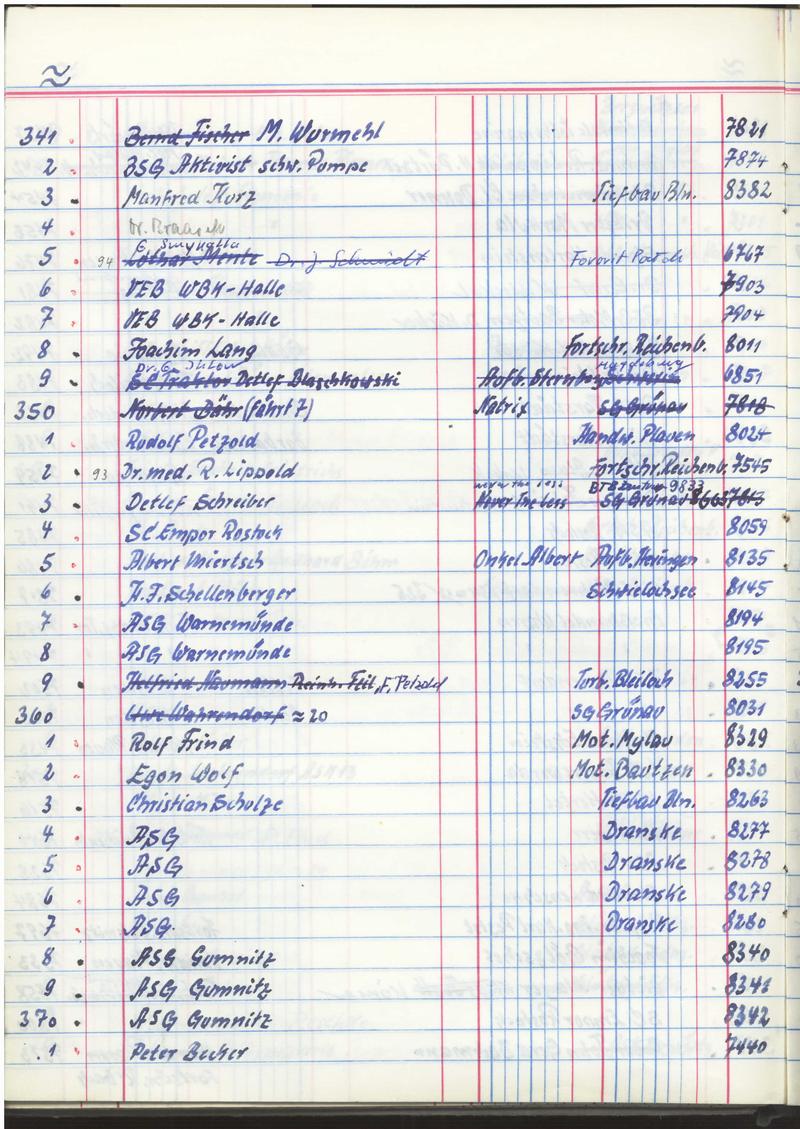 ≈
341 Bernd Fischer M. Wurmehl 7821
2 BSG Aktivist schw. Pumpe 7874
3 Manfred Kurz Tiefbau Bln. 8382
4
5 94 Lothar Mente Dr. J. Schmidt 6767
6 VEB WBK-Halle 7903
7 VEB WBK-Halle 7904
8 Joachim Lang Fortschr. Reichenb. 8011
9 SC Traktor Detlef Blaschkowski Aufb. Sternbg. Schwerin 6851
350 Norbert Bähr (fährt 7) Natrix SG Grünau 7818
1 Rudolf Petzold Handw. Plauen 8024
2 93 Dr. med. R. Lippold Fortschr. Reichenb. 7545
never the less 9833
3 Detlef Schreiber Never The Less SG Grünau 7813
4 SC Empor Rostock 8059
5 Albert Miertsch Onkel Albert Aufb. Heringen 8135
6 H.J. Schellenberger Schwielochsee 8145
7 ASG Warnemünde 8194
8 ASG Warnemünde 8195
9 Helfried Naumann Reinh. Feil, F. Petzold Turb. Bleiloch 8255
360 Uwe Wahrendorf ≈ 20 SG Grünau 8031
1 Rolf Frind Mot. Mylau 8329
2 Egon Wolf Mot. Bautzen 8330
3 Christian Schulze Tiefbau Bln. 8263
4 ASG Dranske 8277
5 ASG Dranske 8278
6 ASG Dranske 8279
7 ASG Dranske 8280
8 ASG Gumnitz 8340
9 ASG Gumnitz 8341
370 ASG Gumnitz 8342
1 Peter Becker 7440